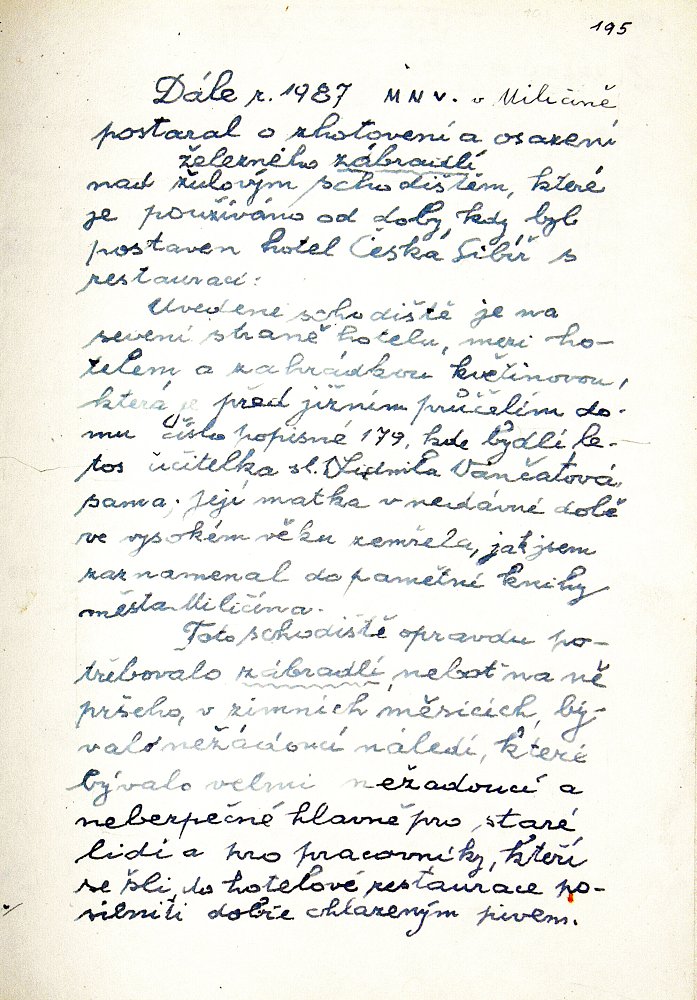 195
Dále r. 1987 MNV. v Miličíně
postaral o zhotovení a osazení
železného zábradlí
nad žulovým schodištěm, které
je používáno od doby, kdy byl
postaven hotel Česká Sibiř s
restaurací.
Uvedené schodiště je na
severní straně hotelu, mezi ho-
telem a zahrádkou květinovou,
která je před jižním průčelím do-
mu číslo popisné 179, kde bydlí le-
tos učitelka sl. Ludmila Vančatová,
sama. Její matka v nedávné době
ve vysokém věku zemřela, jak jsem
zaznamenal do pamětní knihy
města Miličína.
Toto schodiště opravdu po-
třebovalo zábradlí, neboť na ně
pršelo, v zimních měsících, bý-
valo nežádoucí náledí, které
bývalo velmi nežadoucí a
nebezpečné hlavně pro staré
lidi a pro pracovníky, kteří
se šli do hotelové restaurace po-
silniti dobře chlazeným pivem.